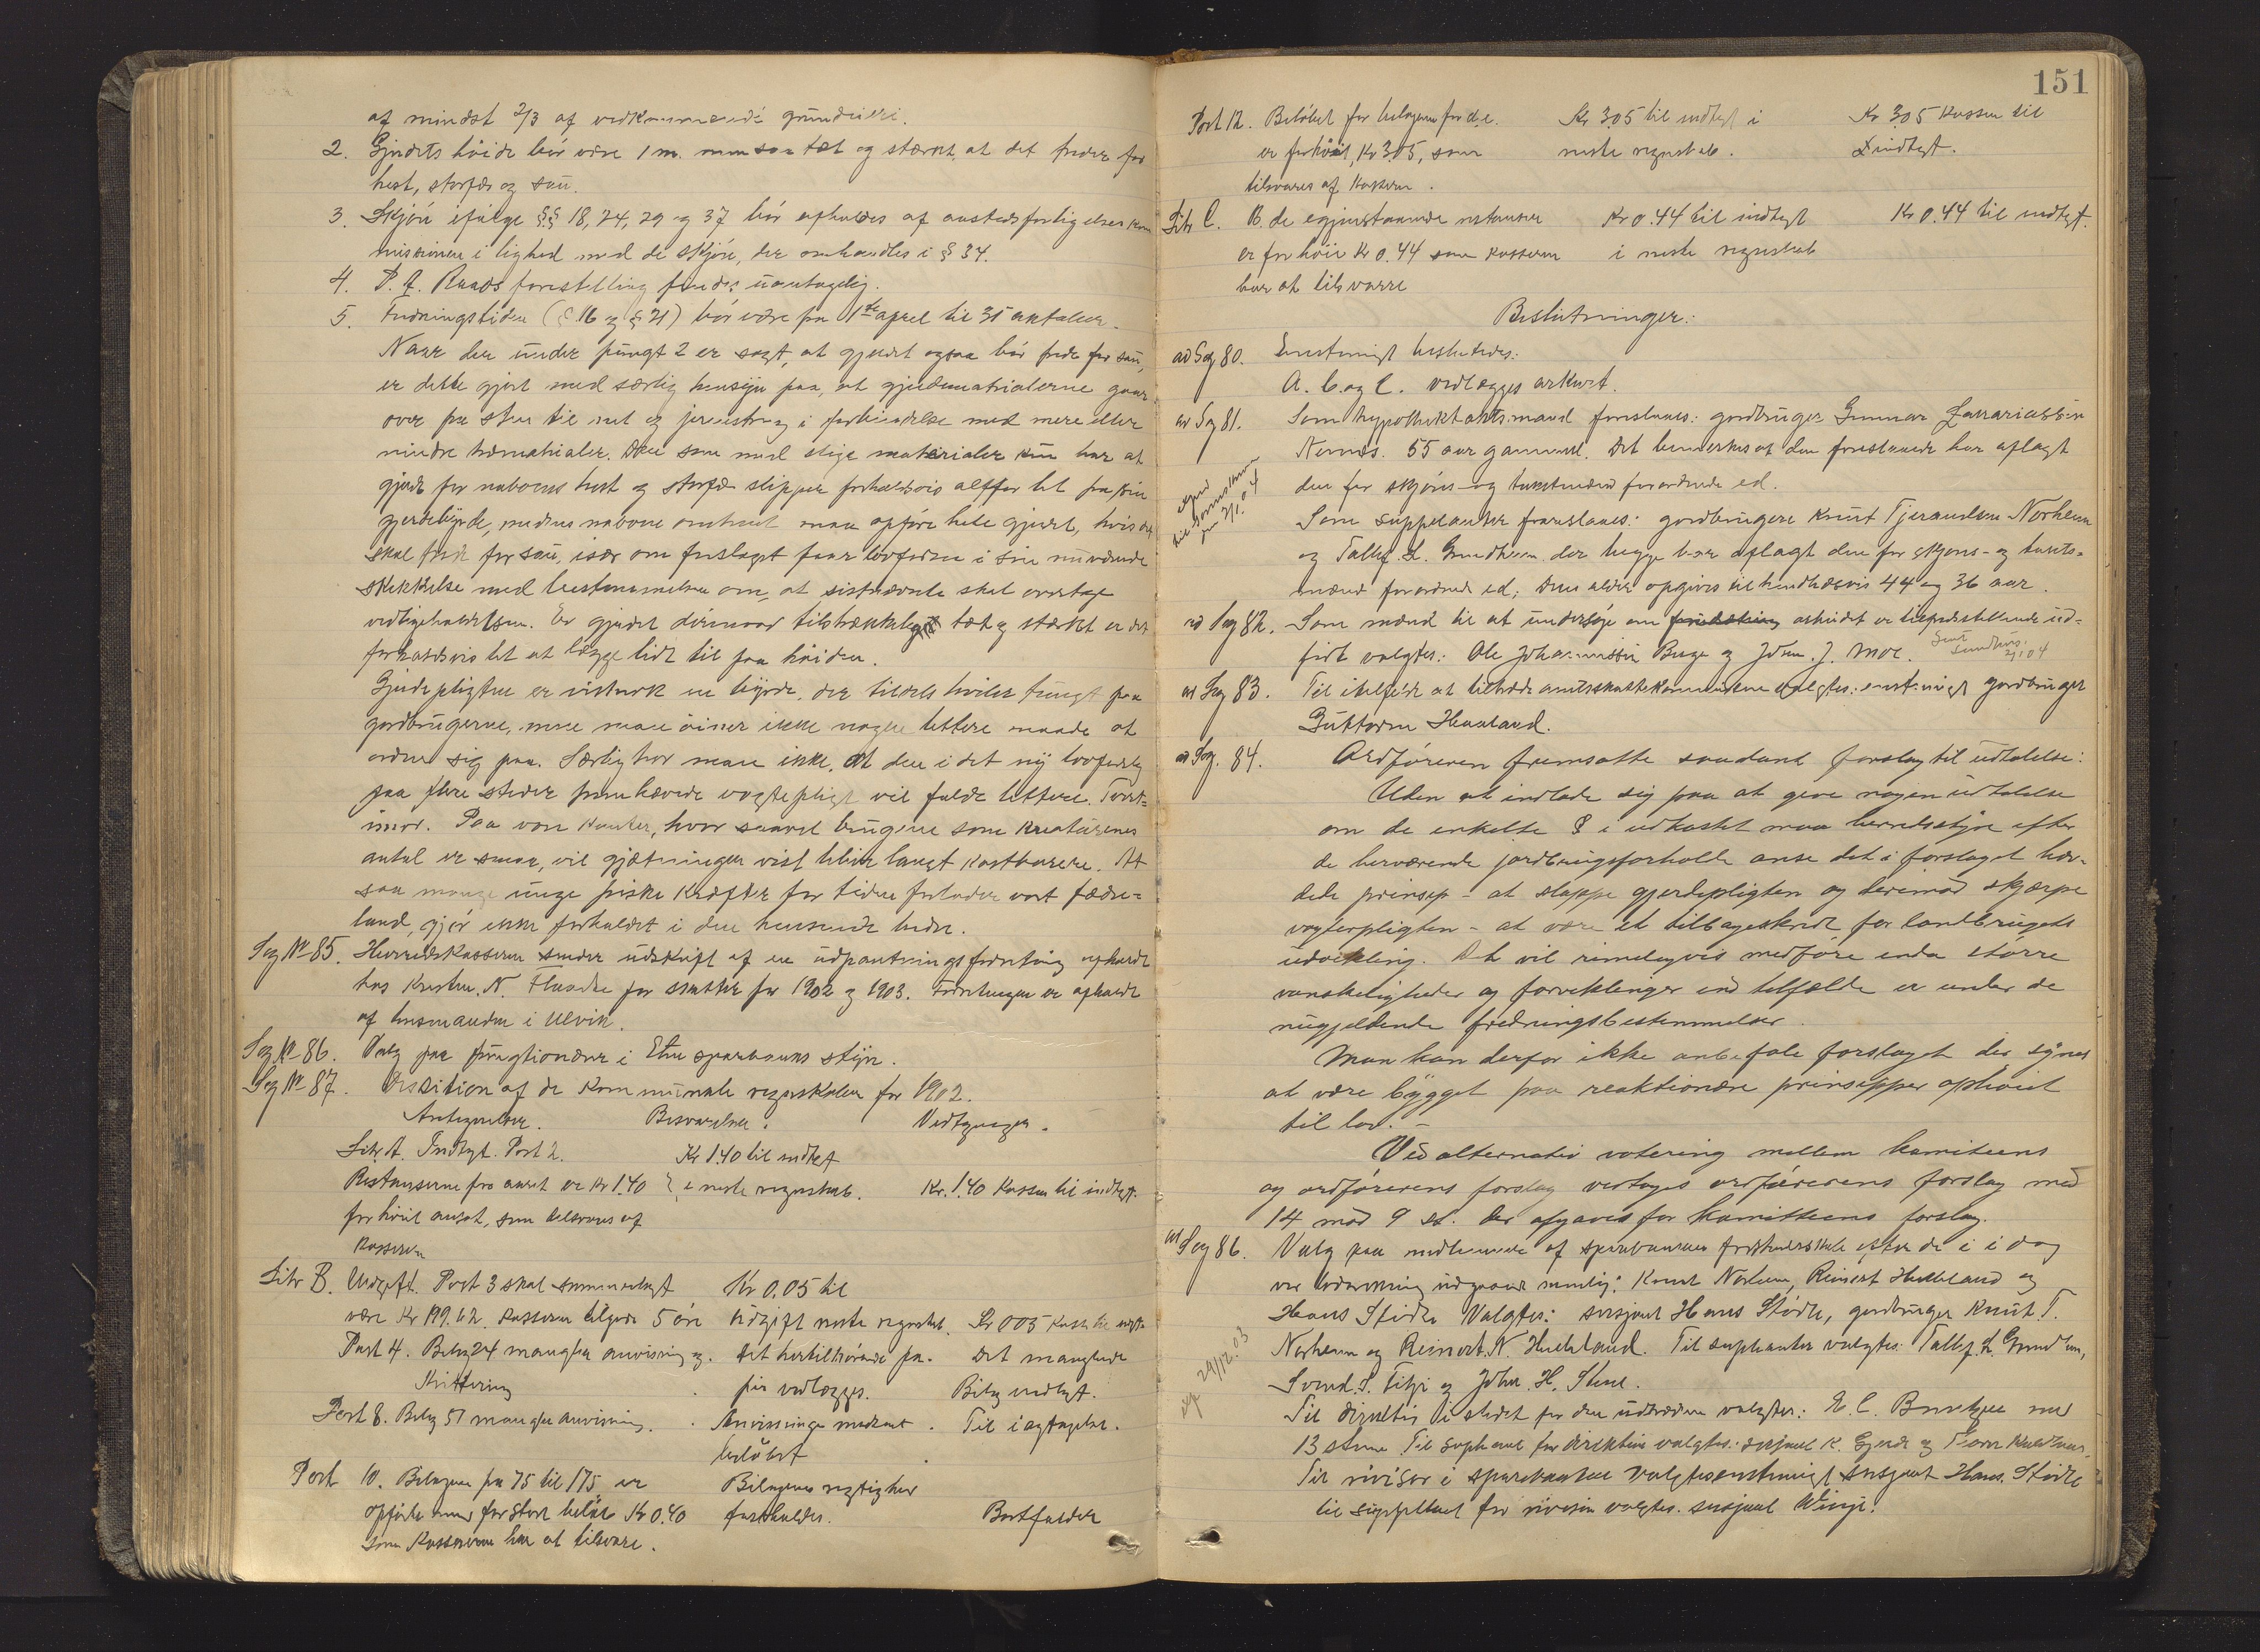 af mindst 2/3 af vedkommende grundeiere.
2. Gjerdets höide bör være 1 m. men saa tæt og stærkt, at det freder for
hest, storfæ og sau.
3. Skjön ifölge §§ 18, 24, 29 og 37 bör afholdes af anstedsforligelseskom
missionen i lighed med de skjön, der omhandles i § 34.
4. P. A. Raads forestilling findes uantagelig.
5. Fredningstiden (§ 16 og § 21) bör være fra 1ste april til 31 oktober.
Naar der under pungt 2 er sagt, at gjerdet ogsaa bör frede for sau,
er dette gjort med særlig hensyn paa, at gjerdematrialerne gaar
over fra sten til net og jernstreng i forbindelse med mere eller
mindre træmatrialer. Den som med slige materialer kun har at
gjerde for naboens hest og storfæ slipper forholdsvis altfor let fra sin
gjerdebyrde, medens naboen omtrent maa opföre hele gjerdet, hvis det
skal frede for sau, især om forslaget faar lovform i sin nuværende
skikkelse med bestemmelsen om, at sistnævnte skal overtage
vedligeholdelsen. Er gjerdet derimod tilstrækkeligt tæt og stærkt er det
forholdsvis let at lægge lidt til paa höiden.
Gjerdepligten er vistnok en byrde, der tildels hviler tungt paa
gardbrugerne, men man öiner ikke nogen lettere maade at
ordne sig paa. Særlig tror man ikke, at den i det ny lovforslag
paa flere steder fremhævede vogtepligt vil falde lettere. Tvert-
imod. Paa vore kanter, hvor saavel brugene som kreaturenes
antal er smaa, vil gjætningen vist blive langt kostbarere. At
saa mange unge friske kræfter for tiden forlader vort fædre-
land, gjör ikke forholdet i den henseende bedre.
Sag № 85. Herredskasseren sender udskrift af en udpantningsforretning afholdt
hos Kristen N. Flaadre for skatter for 1902 og 1903. Forretningen er afholdt
af lensmanden i Ulvik.
Sag № 86. Valg paa fungtionærer i Etne sparebanks styre.
Sag № 87. Desision af de kommunale regnskaber for 1902.
Antegnelser. Besvarelser. Vedtegninger.
Litr A. Indtægt. Post 2. Kr 1.40 til indtægt
Restanserne fra aaret er Kr 1.40 i neste regnskab. Kr. 1.40 Kassen til indtægt.
for höit ansat, som tilsvares af
kasseren
Litr B. Udgift. Post 3 skal summenlagt Kr 0.05 til
være Kr 199.62. Kasseren tilgode 5 öre udgift neste regnskab. Kr 005 Kassen til udgift
Post 4. Bilag 24 mangler anvisning og det hertilhörende pa- Det manglede
kvittering pir vedlægges. Bilag vedlagt.
Post 8. Bilag 57 mangler anvisning. Anvisninge medsendt Til iagttagelse.
beløbet
Post 10. Bilagene fra 75 til 175 er Bilagenes rigtighed
opförte med for stort belöb Kr 0.40 fastholdes. Bortfalder
som Kasseren har at tilsvare.
151
Post 12. Belöbet for bilagene for d.e. Kr 3.05 til indtægt i Kr 3.05 Kassen til
er forhöit, Kr 305, som neste regnskab. indtægt.
tilsvares af kasseren.
Litr C. B. de egjenstaaende restanser Kr 0.44 til indtægt Kr 0.44 til indtægt.
er for höie Kr 0.44 som kasseren i neste regnskab
har at tilsvarre
Beslutninger:
ad Sag 80. Enstemigt besluttedes:
A. B. og C. vedlægges arkivet.
ad Sag 81. Som hypothektakstmand foreslaaes: gardbruger Gunnar Zakariassen
Nernes. 55 aar gammel. Det bemerkes at den foreslaaede har aflagt
den for skjöns- og takstmænd forordnede ed.
Som suppleanter foreslaaes: gardbrugere Knut Tjerandsen Norheim
og Tallef L. Grindheim der begge har aflagt den for skjöns- og takst-
mænd forordnede ed. Deres alder opgives til henholdsvis 44 og 36 aar.
ad Sag 82. Som mænd til at undersöge om arbeidet er tilfredsstillende ud-
fört valgtes: Ole Johannessen Berge og John J. Moe. Sent
21/04
ad Sag 83. Til itilfelde at tiltræde amtsskattekommisionen valgtes: enstemigt gardbruger
Guttorm Haaland.
ad Sag. 84. Ordföreren fremsatte saadant forslag til udtalelse:
Uden at indlade sig paa at give nogen udtalelse
om de enkelte § i udkastet maa herredsstyre efter
de herværende jordbrugsforholde anse det i forslaget hæv-
dede prinsip – at slappe gjerdepligten og derimod skjærpe
vogterpligten – at være et tilbageskridt for landbrugets
udvikling. Det vil rimeligvis medföre enda större
vanskeligheder og forviklinger end tilfælde er under de
nugjeldende fredningsbestemmelser.
Man kan derfor ikke anbefale forslaget der synes
at være bygget paa reaktionære prinsipper ophöiet
til lov. –
Ved alternativ votering mellem komiteens
og ordförerens forslag vedtoges ordförerens forslag med
14 mod 9 st. der afgaves for komitteens forslag.
ad Sag 86. Valg paa medlemmer af sparebankens forstanderskab efter de i i dag
ved lodtrækning udgaaede nemlig: Knut Norheim, Reinert Hukeland og
Hans Stödle Valgtes: sersjant Hans Stödle, gardbruger Knut T.
Norheim og Reinert N. Hukeland. Til suppleanter valgtes: Tallef L. Grindheim,
Svend S. Fitje og John H. Stene.
Til direktör i stedet for den udtrædende valgtes: E. C. med
13 stemmer. Til supleant for direktion valgtes: sersjant K. Gjerde og
Til revisor i sparebanken valgtes enstemigt sersjant Hans Stödle
til suppleant for revisor valgtes sersjant Vinje.